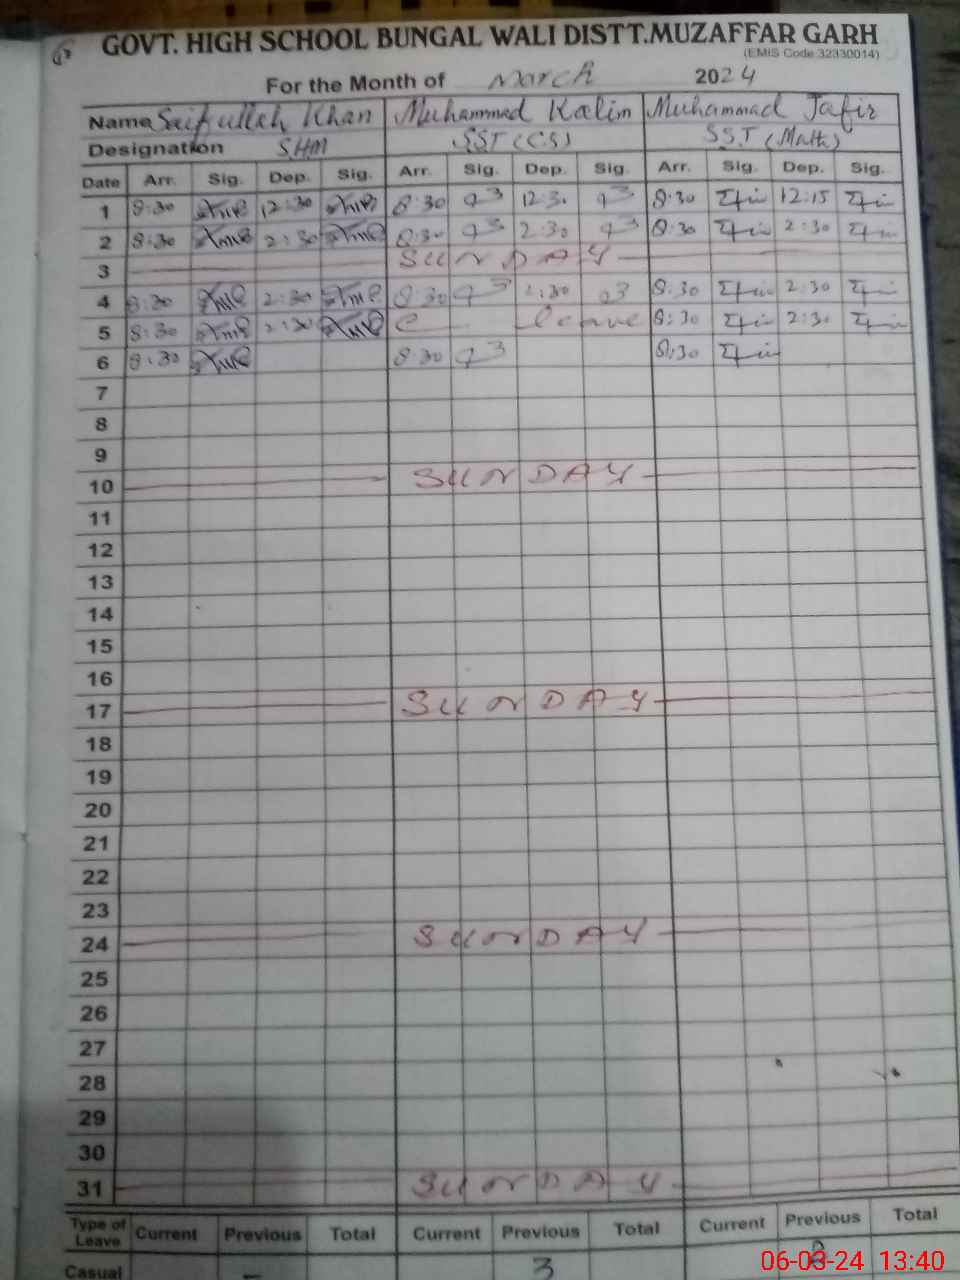 GOVT. HIGH SCHOOL BUNGAL WALI DISTT.MUZAFFAR GARH
(EMIS Code 32330014)
For the Month of March 2024
Name Saifullah Khan Muhammad Kalim Muhammad Jafir
Designation SHM SST (CS) SST (Math)
Date Arr. Sig. Dep. Sig. Arr. Sig. Dep. Sig. Arr. Sig. Dep. Sig.
1 8:30 12:30 8:30 12:30 8:30 12:15
2 8:30 2:30 8:30 2:30 8:30 2:30
3 SUNDAY
4 8:30 2:30 8:30 2:30 8:30 2:30
5 8:30 2:30 C leave 8:30 2:30
6 8:30 8:30 8:30
7
8
9
10 SUNDAY
11
12
13
14
15
16
17 SUNDAY
18
19
20
21
22
23
24 SUNDAY
25
26
27
28
29
30
31 SUNDAY
Type of Leave Current Previous Total Current Previous Total Current Previous Total
Casual – 3
06-03-24 13:40